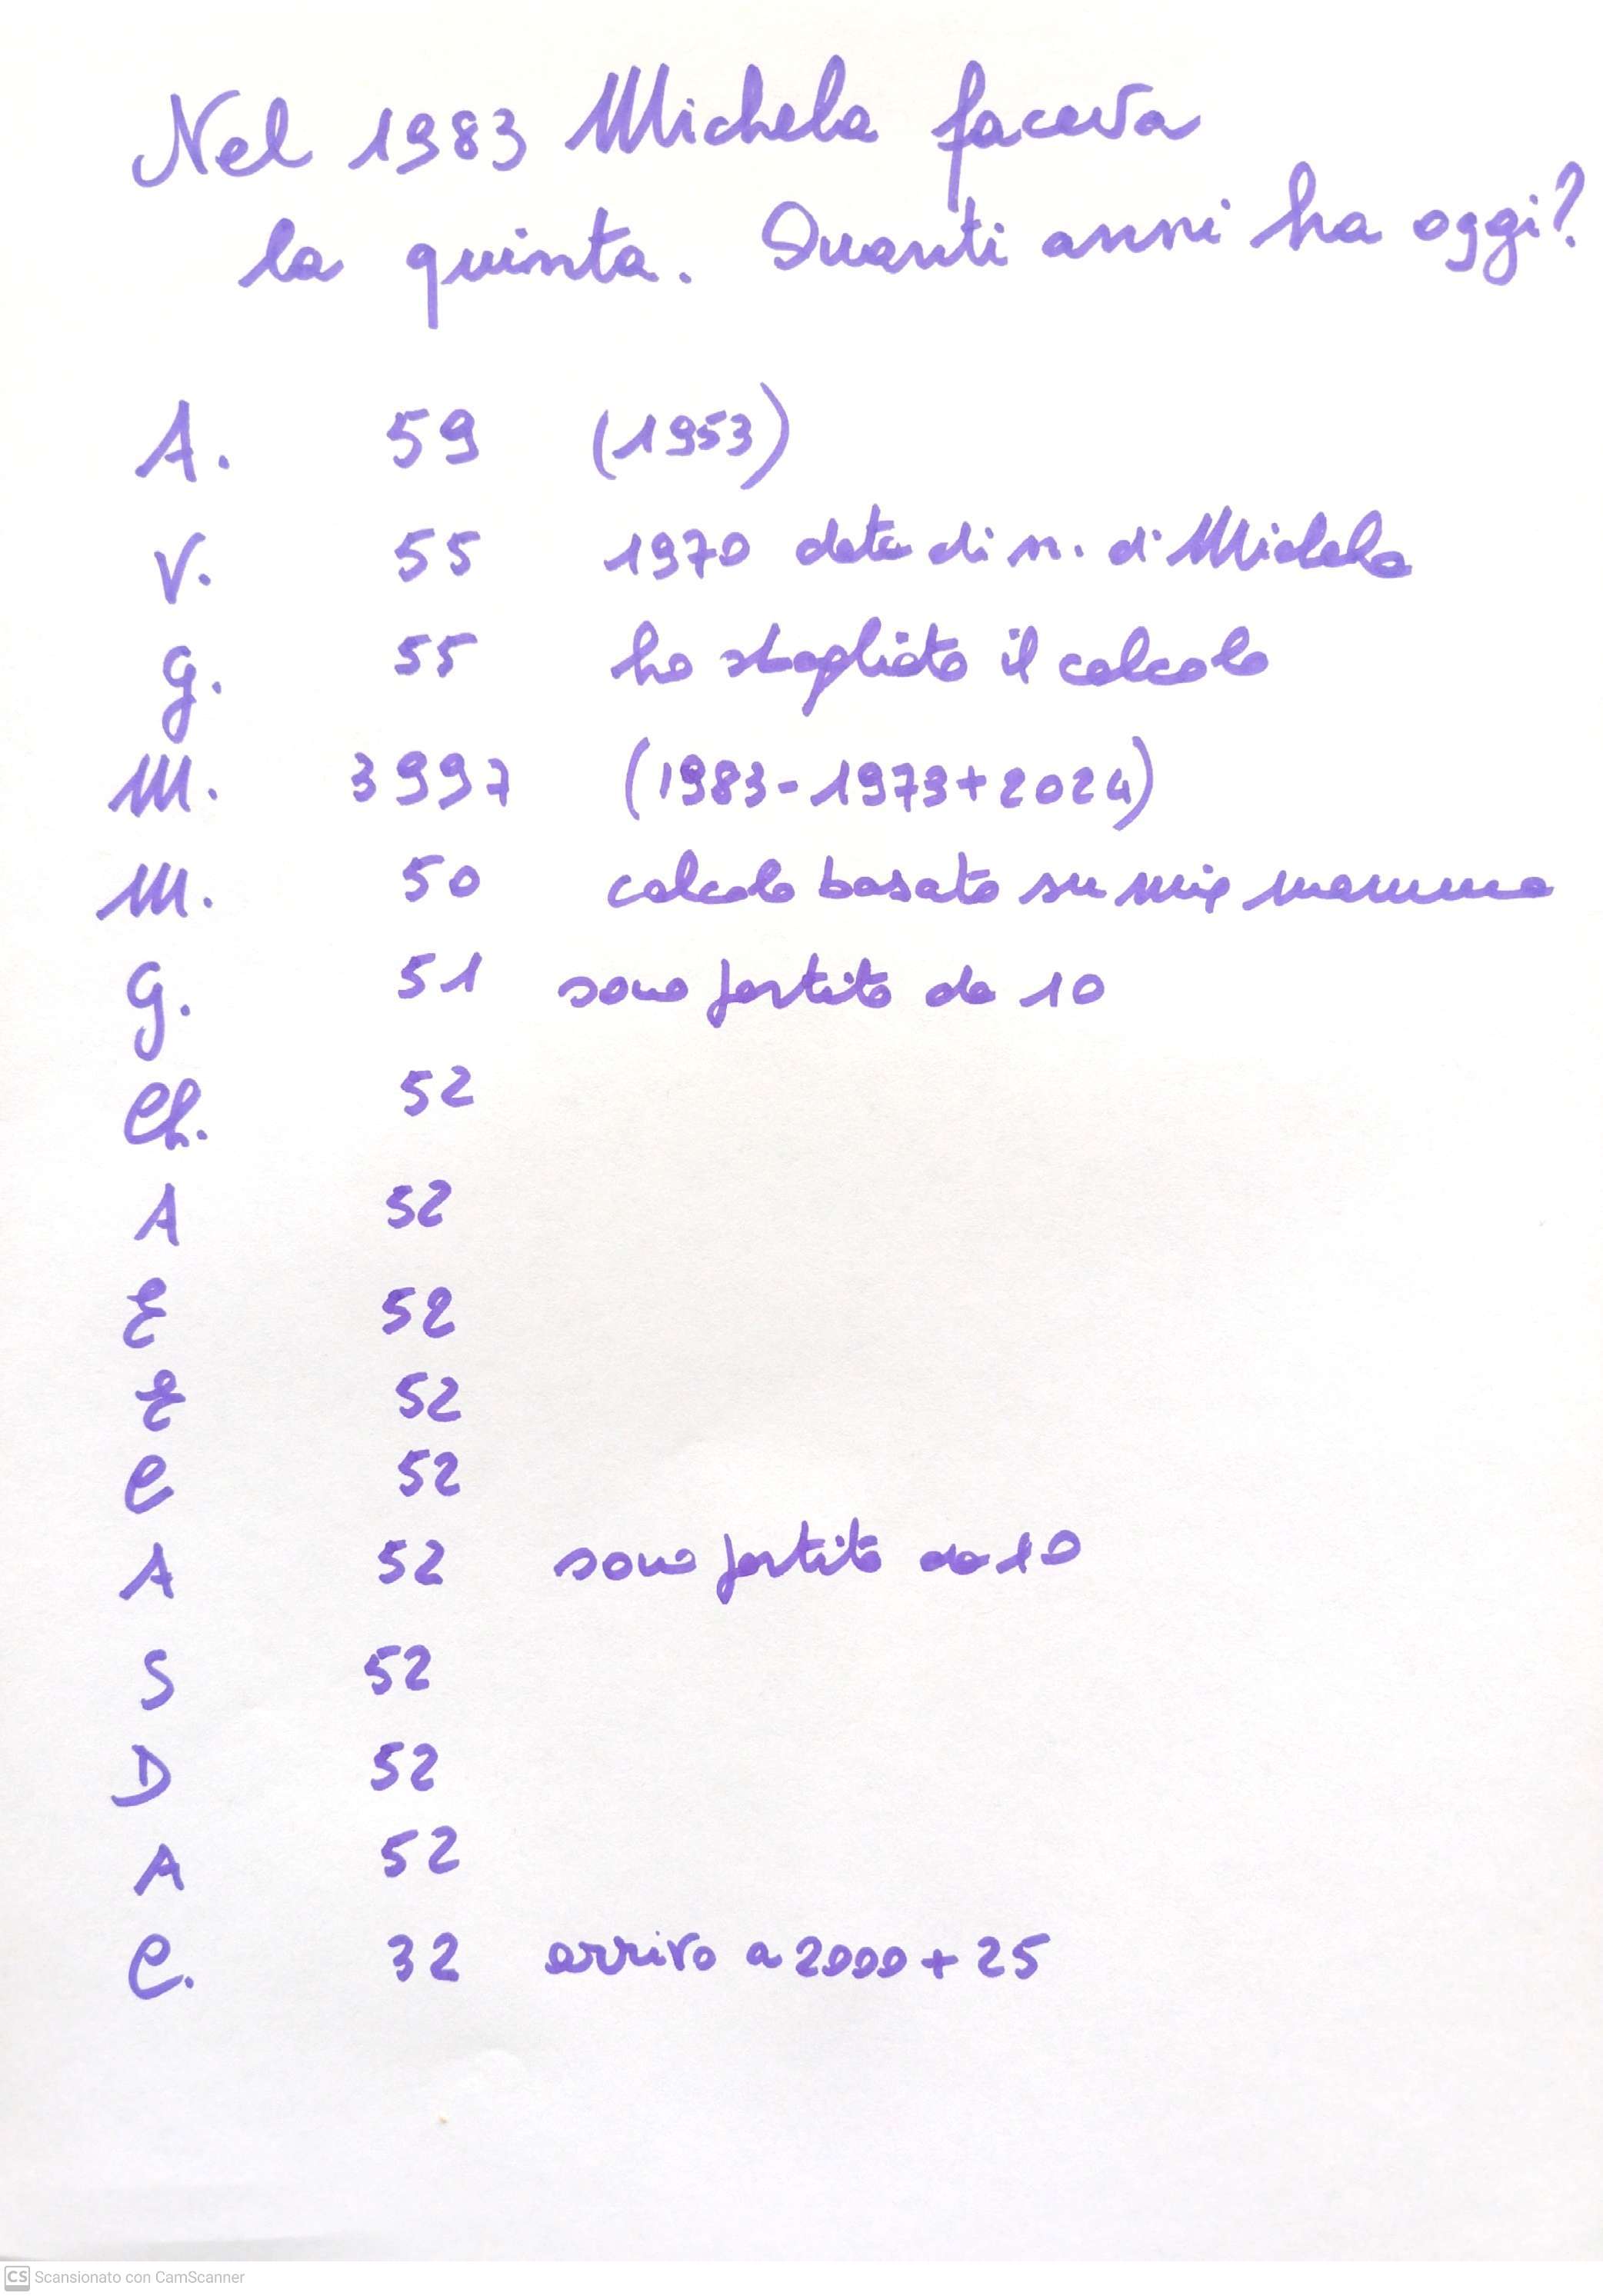 Nel 1983 Michela faceva
la quinta. Quanti anni ha oggi?
A. 59 (1953)
V. 55 1970 data di n. di Michela
G. 55 ho sbagliato il calcolo
M. 3997 (1983-1973+2024)
M. 50 calcolo basato su mia mamma
G. 51 sono partito da 10
Ch. 52
A 52
E 52
E 52
C 52
A 52 sono partito da 10
S 52
D 52
A 52
C. 32 arrivo a 2000+25
CS Scansionato con CamScanner